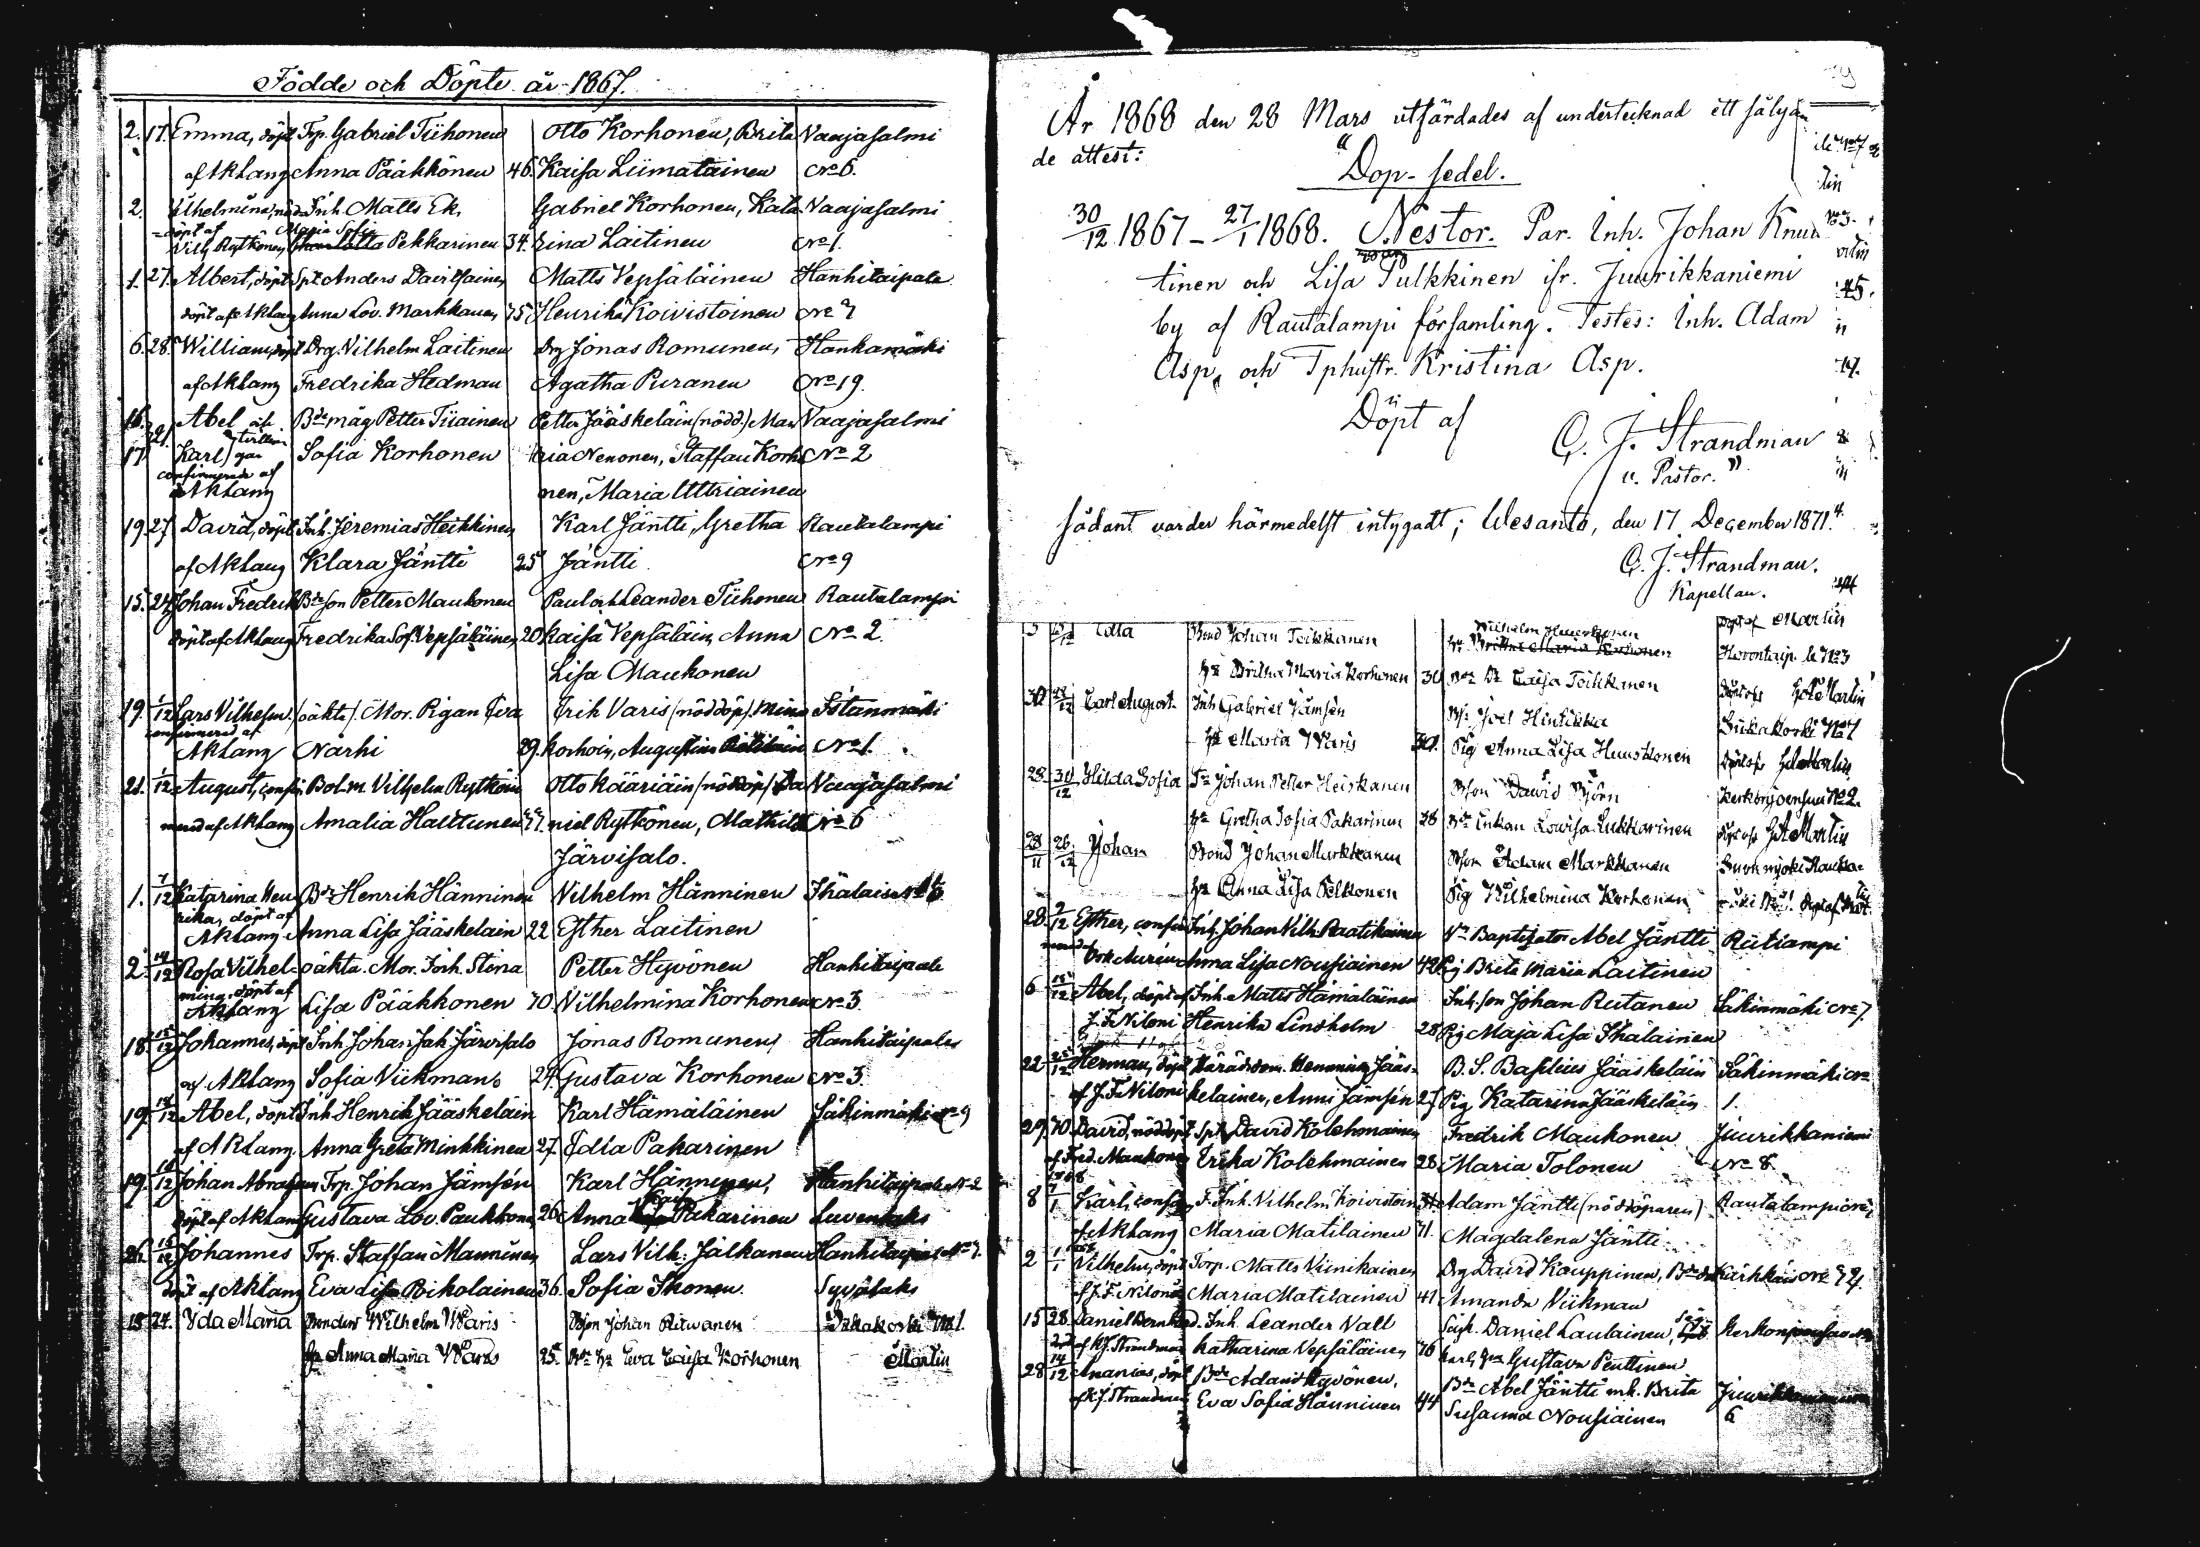 Födde och Döpte år 1867.
2. 17. Emma, döpt Trp. Gabriel Tiihonen Otto Korhonen, Brita Vaajasalmi
af AkLang Anna Pääkkönen 46. Kaisa Liimatainen No 6.
2. Vilhelmina, Inh. Matts Ek, Gabriel Korhonen, Kata- Vaajasalmi
döpt af Maria Sofia
Vilh. Rytkönen Pekkarinen 34. rina Laitinen No 1.
1. 27. Albert, döpt Spt. Anders Davidsainen Matts Vepsäläinen Hanhitaipale
döpt af AkLang Anna Lov. Markkanen 35 Henrika Koivistoinen No 7
6. 28. William, döpt Drg. Vilhelm Laitinen Drg Jonas Romunen, Hankamäki
af AkLang Fredrika Hedman Agatha Puranen No 19.
16. Abel och Bde måg Petter Tiiainen Petter Jääskeläin (nödd.) Mar Vaajasalmi
17. Karl Sofia Korhonen ia Nenonen, Staffan Korho No 2
confirmerade af
AkLang nen, Maria Uttriainen
19. 27. David, döpt Inh. Jeremias Heikkinen, Karl Jäntti, Gretha Rautalampi
af AkLang Klara Jäntti 25 Jäntti. No 9
15. 24. Johan Fredrik Bde son Petter Maukonen Paul och Leander Tiihonen Rautalampi
döpt af AkLang Fredrika Sof. Vepsäläinen, 20 Kaisa Vepsäläin, Anna No 2.
Lisa Maukonen
19. 1/12 Lars Vilhelm (oäkta). Mor. Pigan Eva Erik Varis (nöddöp) Mina Istanmäki
confirmerad af
AkLang Närhi 29. Korhoin, Augustina No 1.
21. 1/12 August, confir Bol.m. Vilhelm Rytkön Otto Kääriäin (nöddöp) Da Vaajasalmi
merad af AkLang Amalia Halttunen niel Rytkönen, Mathilda No 6
Järvisalo.
1. 7/12 Katarina Hen- Bde Henrik Hänninen Vilhelm Hänninen Ihälais No 6
rika, döpt af
AkLang Anna Lisa Jääskeläin 22 Esther Laitinen
2. 14/12 Rosa Vilhel- oäkta. Mor. Inh. Stina Petter Hyvönen Hanhitaipale
mina, döpt af
AkLang Lisa Pääkkonen 70. Vilhelmina Korhonen No 3.
18. 15/12 Johannes, döpt Inh Johan Jak Järvisalo Jonas Romunen, Hanhitaipale
af AkLang Sofia Viikman 24. Gustava Korhonen No 3.
19. 18/12 Abel, döpt Inh. Henrik Jääskeläin Karl Hämäläinen Säkinmäki No 9
af AkLang Anna Greta Minkkinen 27. Edla Pakarinen
19. 16/12 Johan Abraham Trp. Johan Jämsén Karl Hänninen, Hanhitaipale No 2
döpt af AkLang Gustava Lov. Paukkone 26 Anna Kaisa Pakarinen Luventaks
26. 15/12 Johannes Trp. Staffan Manninen Lars Vilh. Jalkanen Hanhitaipale No 7.
döpt af AkLang Eva Lisa Rikolainen 36. Sofia Ikonen. Syvälaks
18 24. Yda Maria Bonden Wilhelm Waris Bson Johan Ritwanen Sikakoski No 1.
hu Anna Maria Waris 25. hu Eva Caisa Korhonen Martin
År 1868 den 28 Mars utfärdades af undertecknad ett följan-
de attest:
"Dop-sedel.
30/12 1867 – 27/1 1868. Nestor. Par. Inh. Johan Knuu
tinen och Lisa Pulkkinen ifr. Juurikkaniemi
by af Rautalampi församling. Testes: Inh. Adam
Asp, och Tphustr. Kristina Asp.
Döpt af
C. J. Strandman
v. Pastor."
Sådant varder härmedelst intygadt; Wesanto, den 17 December 1871.
C. J. Strandman.
Kapellan.
Edla Bond Johan Toikkanen Wilhelm Huuskonen Döpt af Martin
hu Britha Maria Korhonen Horontaip. le No 3
hu Britha Maria Korhonen 30 Caisa Toikkanen
30 Carl August Inh Gabriel Jämsén Bs: Joel Hintikka Döpt af Martin
hu Maria Waris 30. Pig Anna Lisa Huuskonen Sikakoski No 1
28 31/12 Hilda Sofia Johan Petter Heiskanen Bson Dawid Björn Döpt af Martin
hu Gretha Sofia Pakarinen 28 Enkan Lowisa Lukkarinen Kerkonjoensuu No 2.
28/11 26/12 Johan Bond Johan Markkanen Bson Adam Markkanen Döpt af Martin
hu Anna Lisa Pelkonen Pig Wilhelmina Korhonen
28. 9/12 Esther, confir Inh. Johan Vilh. Raatikainen Baptizator Abel Jäntti Rutiampi
merad Anna Lisa Nousiainen 42 Pig Brita Maria Laitinen
6 15/12 Abel, döpt af Inh. Matts Hämäläinen Inh. son Johan Rutanen Säkinmäki No 7.
J. F. Niloni Henrika Lindholm 28 Pig Maja Lisa Ihalainen
22 25/12 Herman, döpt Häradsdom. Henning Jääs- B. S. Basilius Jääskeläin Säkinmäki No
af J. F. Niloni keläinen, Anna Jämsén 27 Pig Katarina Jääskeläin 1.
29. 30. David, nöddöpt Spt. David Kolehmainen Fredrik Maukonen Juurikkaniemi
af Fred. Maukonen Erika Kolehmainen 28 Maria Tolonen No 8
1868
8 Karl, confir F. Inh. Vilhelm Koivistoin 34 Adam Jäntti (nöddöparen) Rautalampi
af AkLang Maria Matilainen 71. Magdalena Jäntti
2 1/1 Vilhelm, döpt Torp. Matts Vänikainen Drg David Kauppinen, Kärkkäis No 24.
af J. F. Niloni Maria Matilainen 41 Amanda Viikman
15 28. Daniel Bernhard. Inh. Leander Vall Daniel Laulainen, Kerkonjoensuu
af KJ. Strandman Katharina Vepsäläinen 36 Gustava Penttinen
28 14/12 Ananias, döpt Bde Adam Hyvönen, Bde Abel Jäntti mh. Brita Juurikkaniemi
af KJ. Strandman Eva Sofia Hänninen 44 Susanna Nousiainen 6